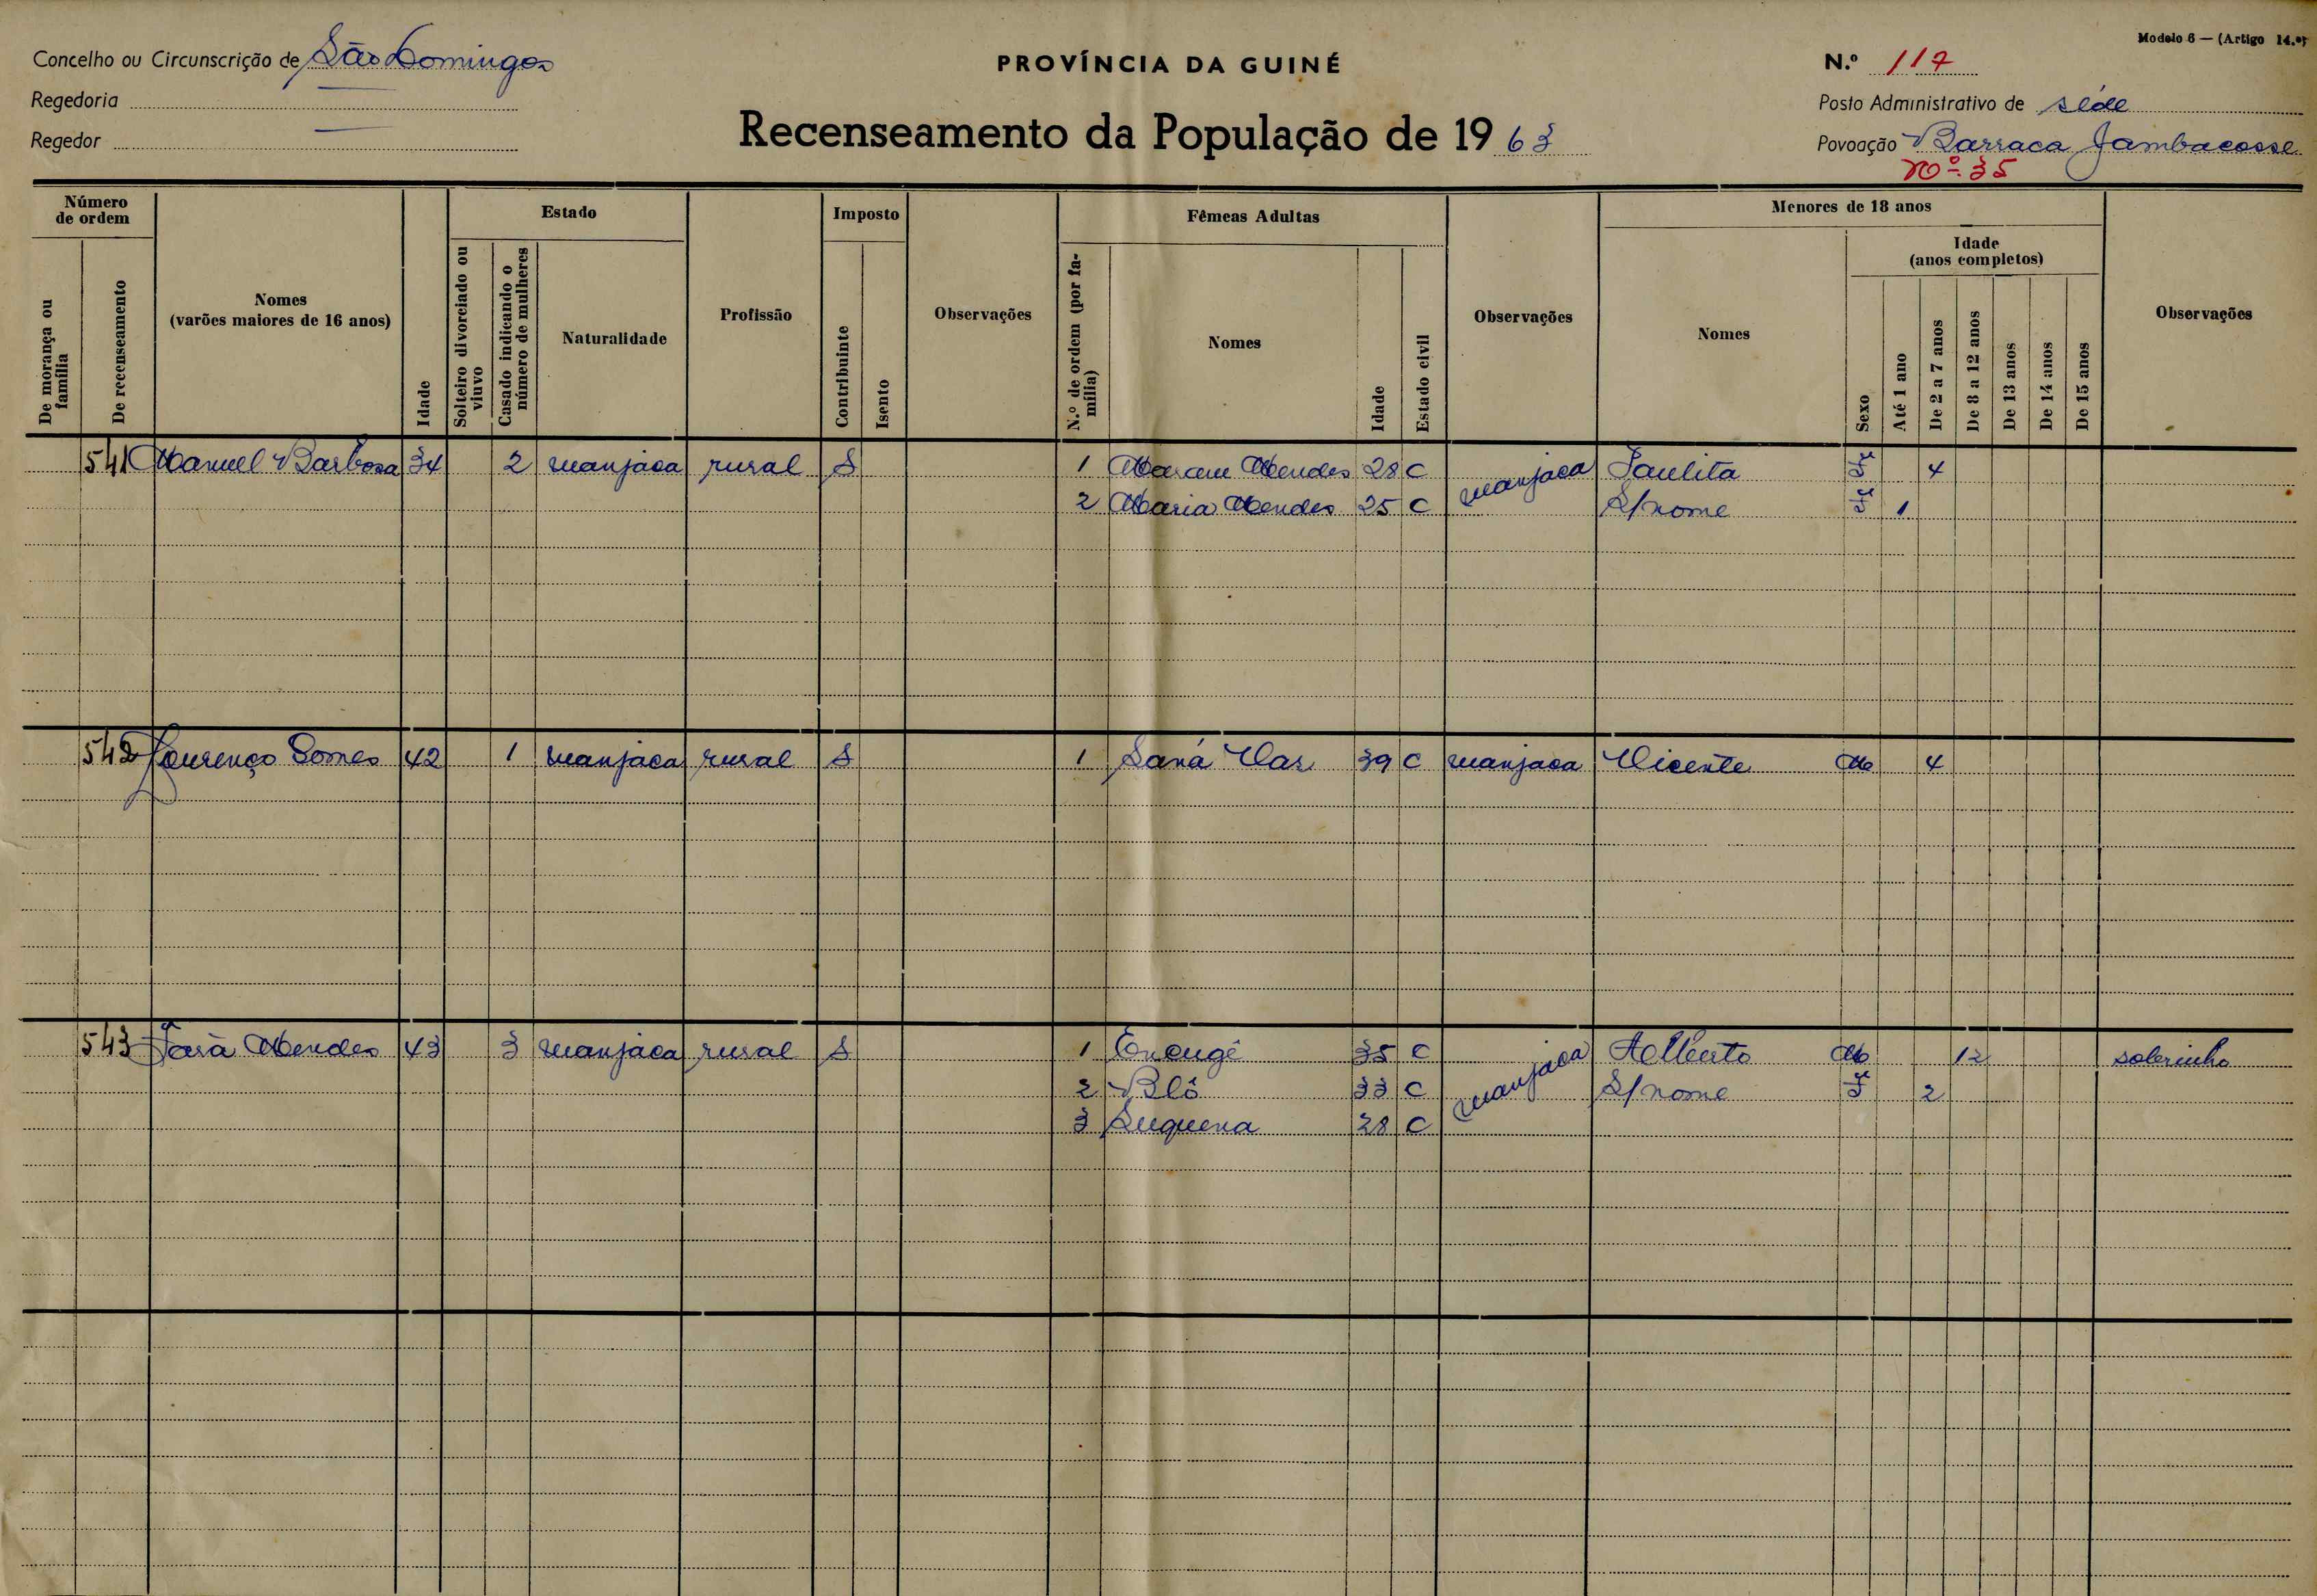 Modelo 6 — (Artigo 14.º)
Concelho ou Circunscrição de São Domingos
PROVÍNCIA DA GUINÉ
N.º 117
Regedoria —
Posto Administrativo de séde
Regedor —
Recenseamento da População de 19 63
Povoação Barraca Jambacosse
Nº 35
Número de ordem
De morança ou família
De recenseamento
Nomes
(varões maiores de 16 anos)
Idade
Estado
Solteiro divorciado ou viuvo
Casado indicando o número de mulheres
Naturalidade
Profissão
Imposto
Contribuinte
Isento
Observações
Fêmeas Adultas
N.º de ordem (por família)
Nomes
Idade
Estado civil
Observações
Menores de 18 anos
Nomes
Sexo
Idade
(anos completos)
Até 1 ano
De 2 a 7 anos
De 8 a 12 anos
De 13 anos
De 14 anos
De 15 anos
Observações
541 Manuel Barbosa 34 2 manjaca rural S 1 Mendes 28 C manjaca Paulita Fe 4
2 Maria Mendes 25 C S/nome Fe 1
542 Lourenço Gomes 42 1 manjaca rural S 1 Saná Vaz 39 C manjaca Vicente M 4
543 Mendes 43 3 manjaca rural S 1 35 C manjaca Alberto M 12 sobrinho
2 Blô 33 C S/nome Fe 2
3 Suquena 28 C